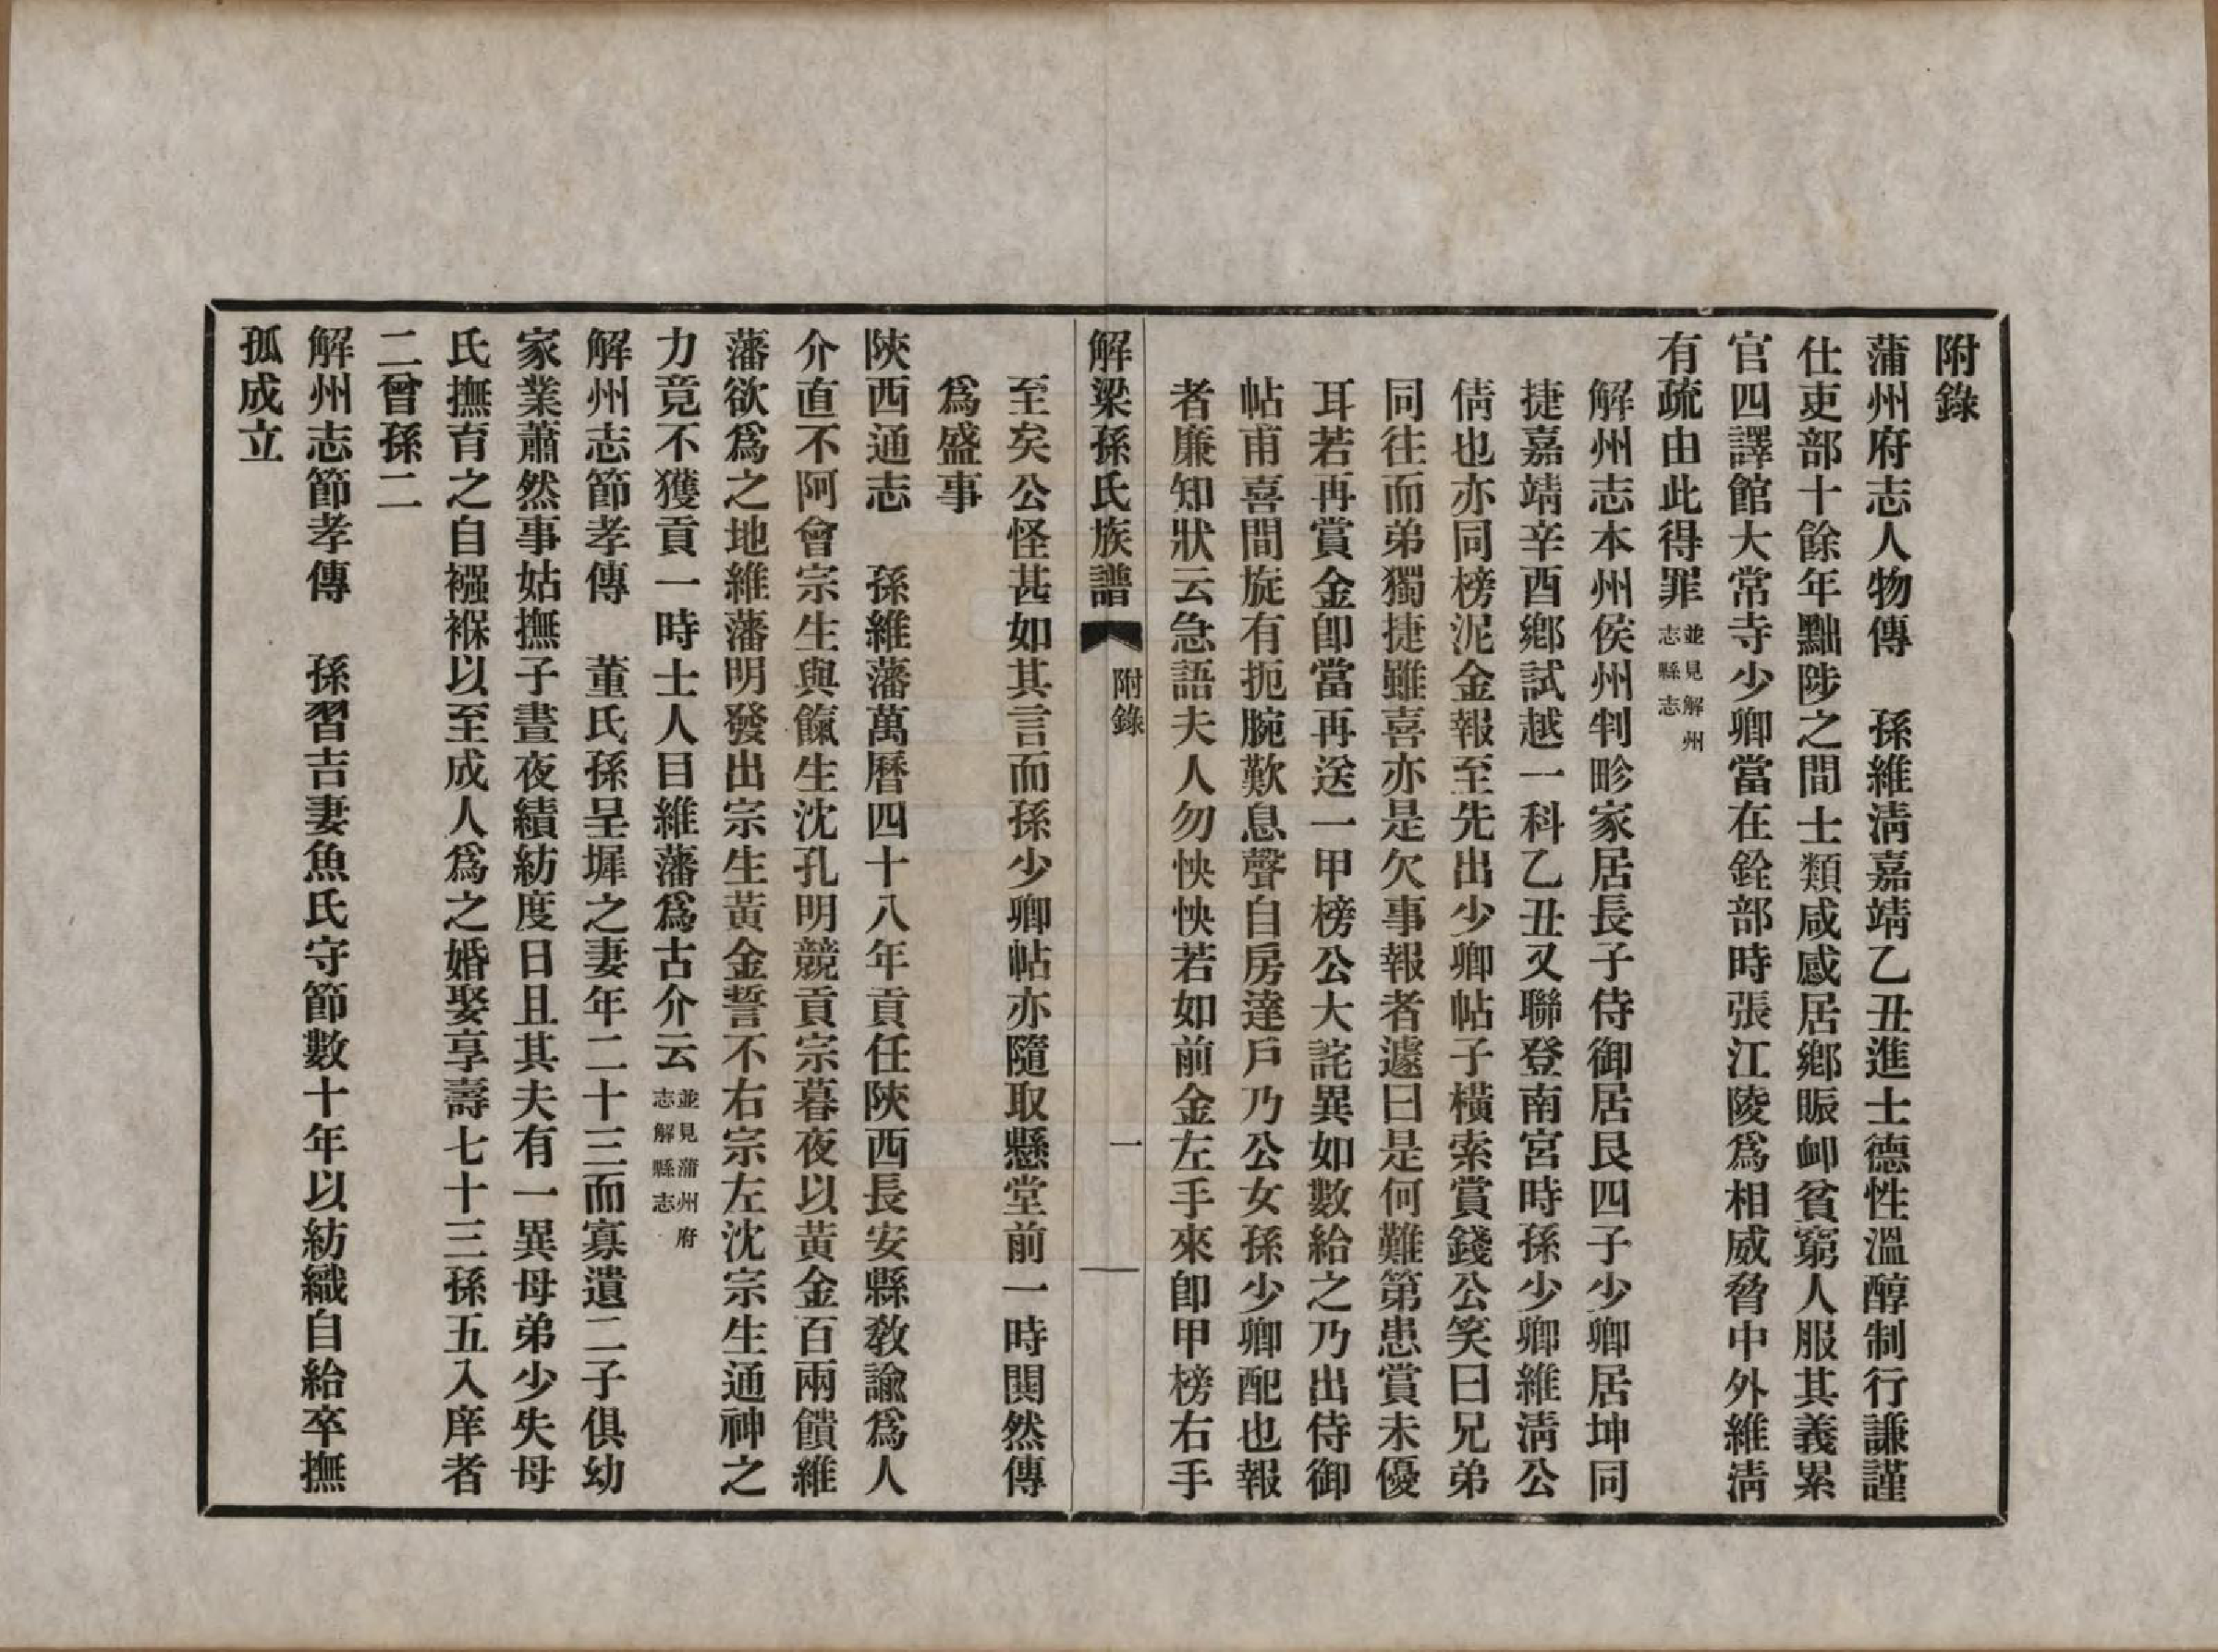 附錄
蒲州府志人物傳　孫維淸嘉靖乙丑進士德性溫醇制行謙謹
仕吏部十餘年黜陟之間士類咸感居鄕賑卹貧窮人服其義累
官四譯館大常寺少卿當在銓部時張江陵爲相威脅中外維淸
有疏由此得罪並見解州志縣志
解州志本州侯州判畛家居長子侍御居艮四子少卿居坤同
捷嘉靖辛酉鄕試越一科乙丑又聯登南宮時孫少卿維淸公
倩也亦同榜泥金報至先出少卿帖子橫索賞錢公笑曰兄弟
同往而弟獨捷雖喜亦是欠事報者遽曰是何難第患賞未優
耳若再賞金卽當再送一甲榜公大詫異如數給之乃出侍御
帖甫喜間旋有扼腕歎息聲自房達戶乃公女孫少卿配也報
者廉知狀云急語夫人勿怏怏若如前金左手來卽甲榜右手
解梁孫氏族譜　附錄　一
至矣公怪甚如其言而孫少卿帖亦隨取懸堂前一時鬨然傳
爲盛事
陝西通志　孫維藩萬曆四十八年貢任陝西長安縣敎諭爲人
介直不阿會宗生與餼生沈孔明競貢宗暮夜以黃金百兩饋維
藩欲爲之地維藩明發出宗生黃金誓不右宗左沈宗生通神之
力竟不獲貢一時士人目維藩爲古介云並見蒲州府志解縣志
解州志節孝傳　董氏孫呈墀之妻年二十三而寡遺二子俱幼
家業蕭然事姑撫子晝夜績紡度日且其夫有一異母弟少失母
氏撫育之自襁褓以至成人爲之婚娶享壽七十三孫五入庠者
二曾孫二
解州志節孝傳　孫習吉妻魚氏守節數十年以紡織自給卒撫
孤成立